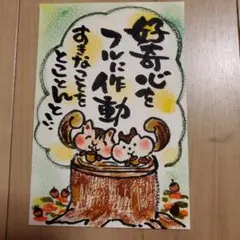 好奇心を
フルに作動
すきなことを
とことんと!!